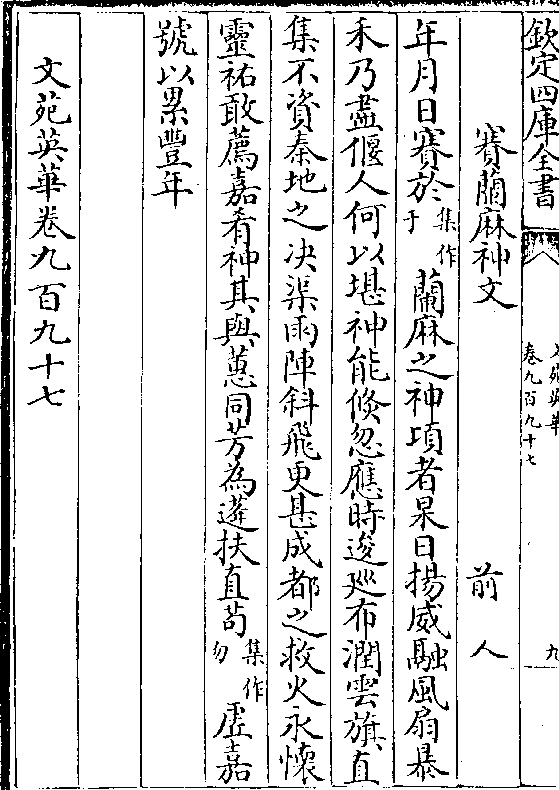 欽定四庫全書
文苑英華
卷九百九十七
九
賽蘭麻神文 前人
年月日賽於集作于蘭麻之神項者杲日揚威融風扇暴
禾乃盡偃人何以堪神能倏忽應時逡廵布潤雲旗直
集不資秦地之决渠雨陣斜飛更甚成都之救火永懐
靈祐敢薦嘉肴神其與蕙同芳為蓬扶直茍集作勿虛嘉
號以累豐年
文苑英華卷九百九十七